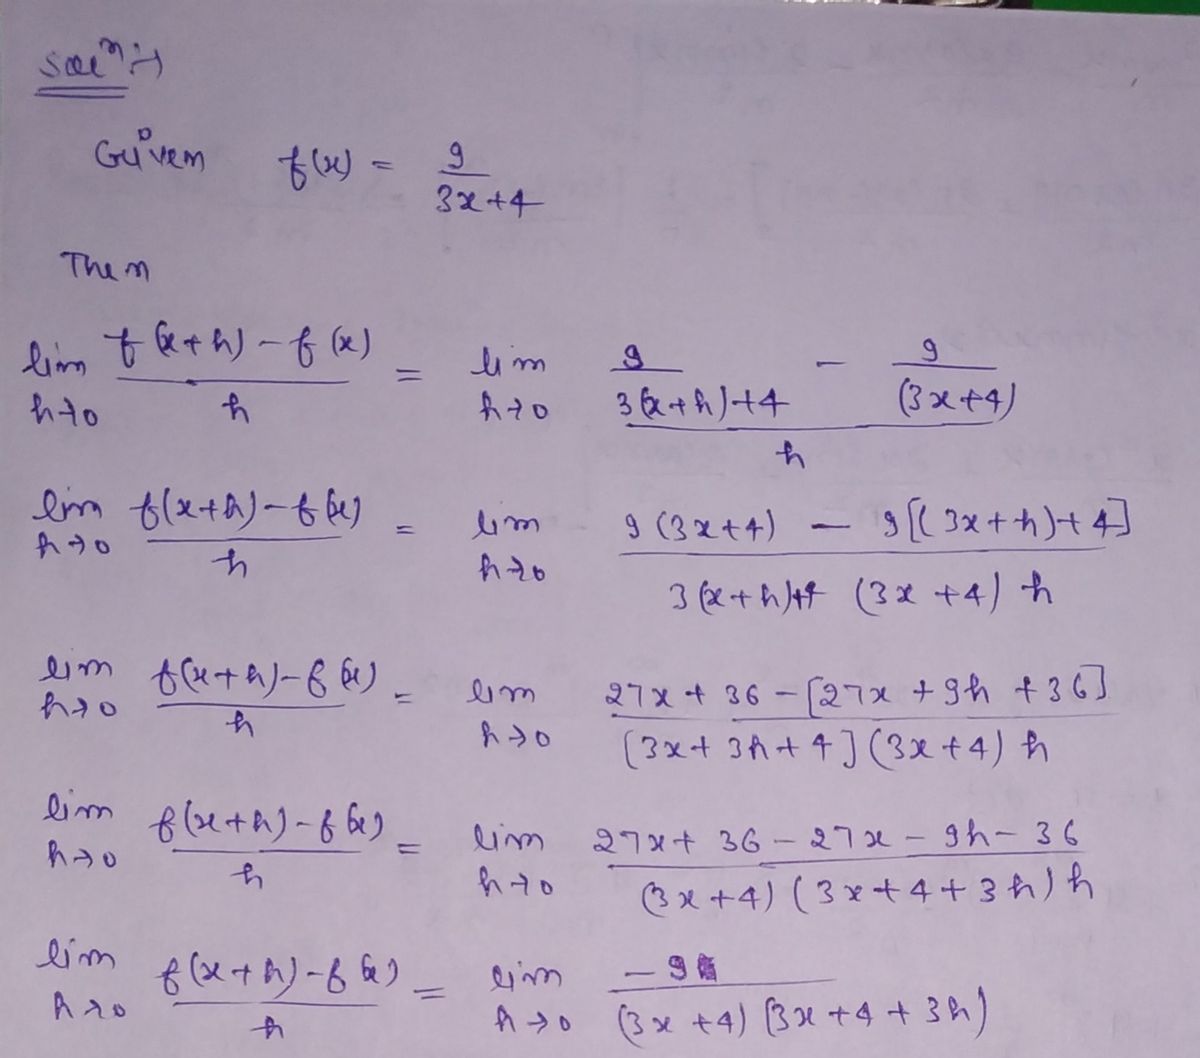 Soln :-)
Given f(x) = 9/(3x+4)
Then
lim h→0 (f(x+h) - f(x))/h = lim h→0 (9/(3(x+h)+4) - 9/(3x+4))/h
lim h→0 (f(x+h) - f(x))/h = lim h→0 (9(3x+4) - 9[(3x+h)+4])/(3(x+h)+4 (3x+4) h)
lim h→0 (f(x+h) - f(x))/h = lim h→0 (27x + 36 - [27x + 9h + 36])/([3x + 3h + 4] (3x+4) h)
lim h→0 (f(x+h) - f(x))/h = lim h→0 (27x + 36 - 27x - 9h - 36)/((3x+4) (3x+4+3h) h)
lim h→0 (f(x+h) - f(x))/h = lim h→0 -9/((3x+4) (3x+4+3h))